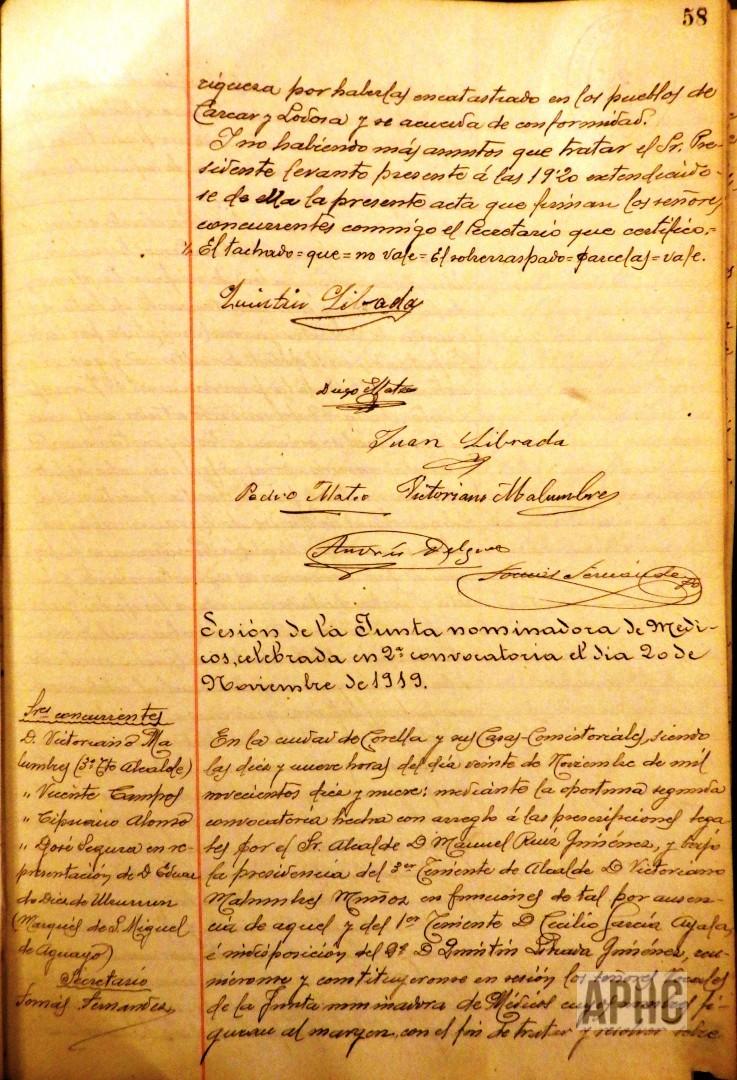 58
riguera por haberlas encatastrado en los pueblos de
Carcar y Lodosa y se acuerda de conformidad.
Y no habiendo más asuntos que tratar el Sr. Pre-
sidente levanto presente á las 19'20 extendiendo-
se de ella la presente acta que firman los señores
concurrentes conmigo el Secretario que certifico.=
El tachado=que=no vale=El sobrerraspado=parcelas=vale.
Quintin Librada
Diego Mateo
Juan Librada
Pedro Mateo Victoriano Malumbres
Andrés Delgado
Tomás Fernández
Sesión de la Junta nominadora de Médi-
cos, celebrada en 2ª convocatoria el dia 20 de
Noviembre de 1919.
Sres concurrentes
D. Victoriano Ma
lumbres (3er Tte Alcalde)
" Vicente Campos
" Cipriano Alonso
" José Segura en re-
presentación de D. Eduar
do Diez de Ulzurrun
(Marqués de S. Miguel
de Aguayo)
Secretario
Tomás Fernandez
En la ciudad de Corella y sus Casas-Consistoriales, siendo
las diez y nueve horas del día veinte de Noviembre de mil
novecientos diez y nueve: mediante la oportuna segunda
convocatoria hecha con arreglo á las prescripciones lega-
les por el Sr. Alcalde D Manuel Ruiz Giménez, y bajo
la presidencia del 3er Teniente de Alcalde D Victoriano
Malumbres Muñoz en funciones de tal por ausen-
cia de aquel y del 1er Teniente D Cecilio García Ayala,
é indisposición del 2º D Quintín Librada Giménez, reu-
nieronse y constituyeronse en sesión los señores vocales
de la Junta nominadora de Médicos cuyos nombres fi-
guran al margen, con el fin de tratar y resolver sobre
APHC